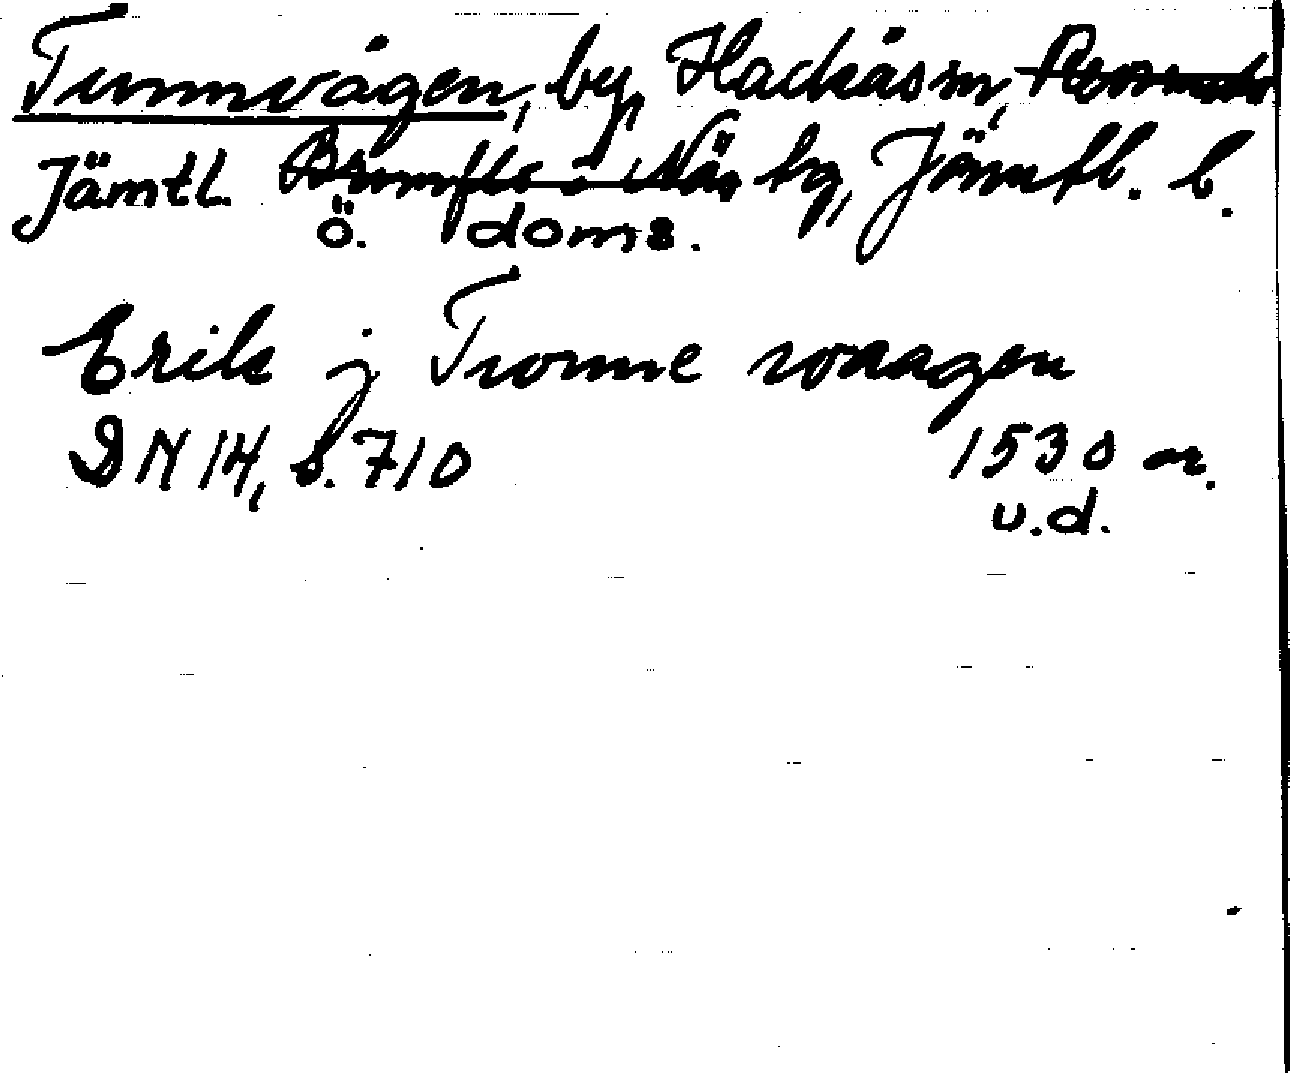 Tunnvågen, by, Hackås sn,
Jämtl. Brunflo o Näs tg, Jämtl. l.
ö. doms.
Erik j Tronne waagen
DN 14, s. 710 1530 ar.
u.d.